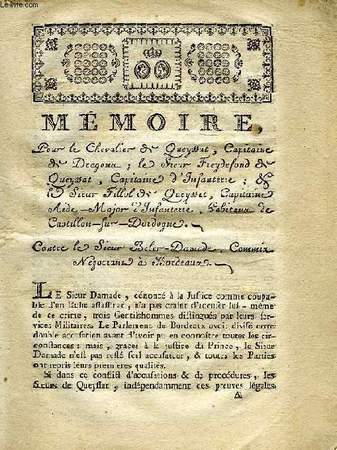 Le-livre.com
MÉMOIRE
Pour le Chevalier de Queyssat, Capitaine
de Dragons ; le Sieur Freydefond de
Queyssat, Capitaine d'Infanterie ; &
le Sieur Fillol de Queyssat, Capitaine
Aide-Major d'Infanterie, habitans de
Castillon-sur-Dordogne.
Contre le Sieur Belir-Damade, Commis
Négociant à Bordeaux.
LE Sieur Damade, dénoncé à la Justice comme coupa-
ble d'un lâche assassinat, n'a pas craint d'accuser lui-même
de ce crime, trois Gentilshommes distingués par leurs ser-
vices Militaires. Le Parlement de Bordeaux avoit divisé cette
double accusation avant d'avoir pu en connoître toutes les cir-
constances : mais, graces à la justice du Prince, le Sieur
Damade n'est pas resté seul accusateur, & toutes les Parties
ont repris leurs premieres qualités.
Si dans ce conflit d'accusations & de procédures, les
sieurs de Queyssat, indépendamment des preuves légales
A